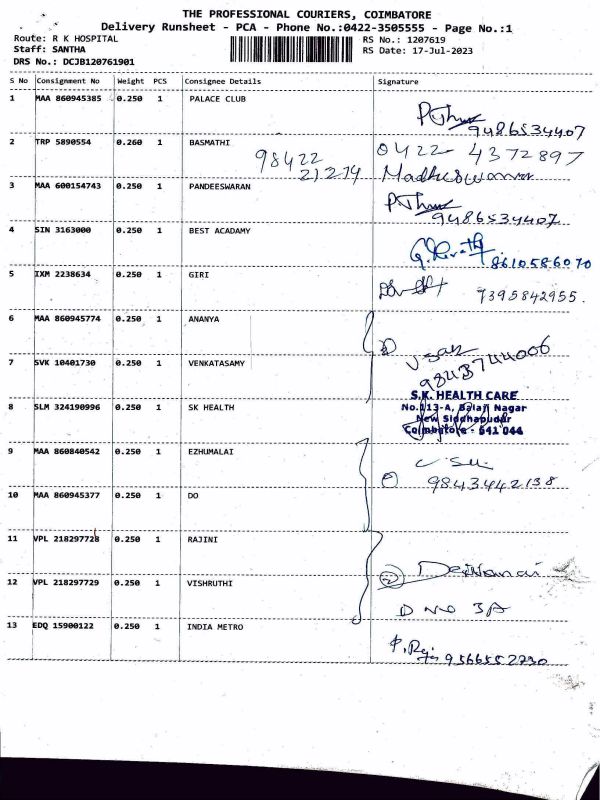 THE PROFESSIONAL COURIERS, COIMBATORE
Delivery Runsheet - PCA - Phone No.:0422-3505555 - Page No.:1
Route: R K HOSPITAL RS No.: 1207619
Staff: SANTHA RS Date: 17-Jul-2023
DRS No.: DCJB120761901
S No Consignment No Weight PCS Consignee Details Signature
1 MAA 860945385 0.250 1 PALACE CLUB
9486534407
2 TRP 5890554 0.260 1 BASMATHI 0422- 4372897
98422
21274 Madheswaran
3 MAA 600154743 0.250 1 PANDEESWARAN
9486534407
4 SIN 3163000 0.250 1 BEST ACADAMY
8610586070
5 IXM 2238634 0.250 1 GIRI
7395842955.
6 MAA 860945774 0.250 1 ANANYA
2
9843744006
7 SVK 10401730 0.250 1 VENKATASAMY
S.K. HEALTH CARE
No.113-A, Balaji Nagar
8 SLM 324190996 0.250 1 SK HEALTH
New Siddhapudur
Coimbatore - 641 044
9 MAA 860840542 0.250 1 EZHUMALAI
9843442138
10 MAA 860945377 0.250 1 DO
11 VPL 218297728 0.250 1 RAJINI
2 Deivanai
12 VPL 218297729 0.250 1 VISHRUTHI
D NO 3A
13 EDQ 15900122 0.250 1 INDIA METRO
9566552730